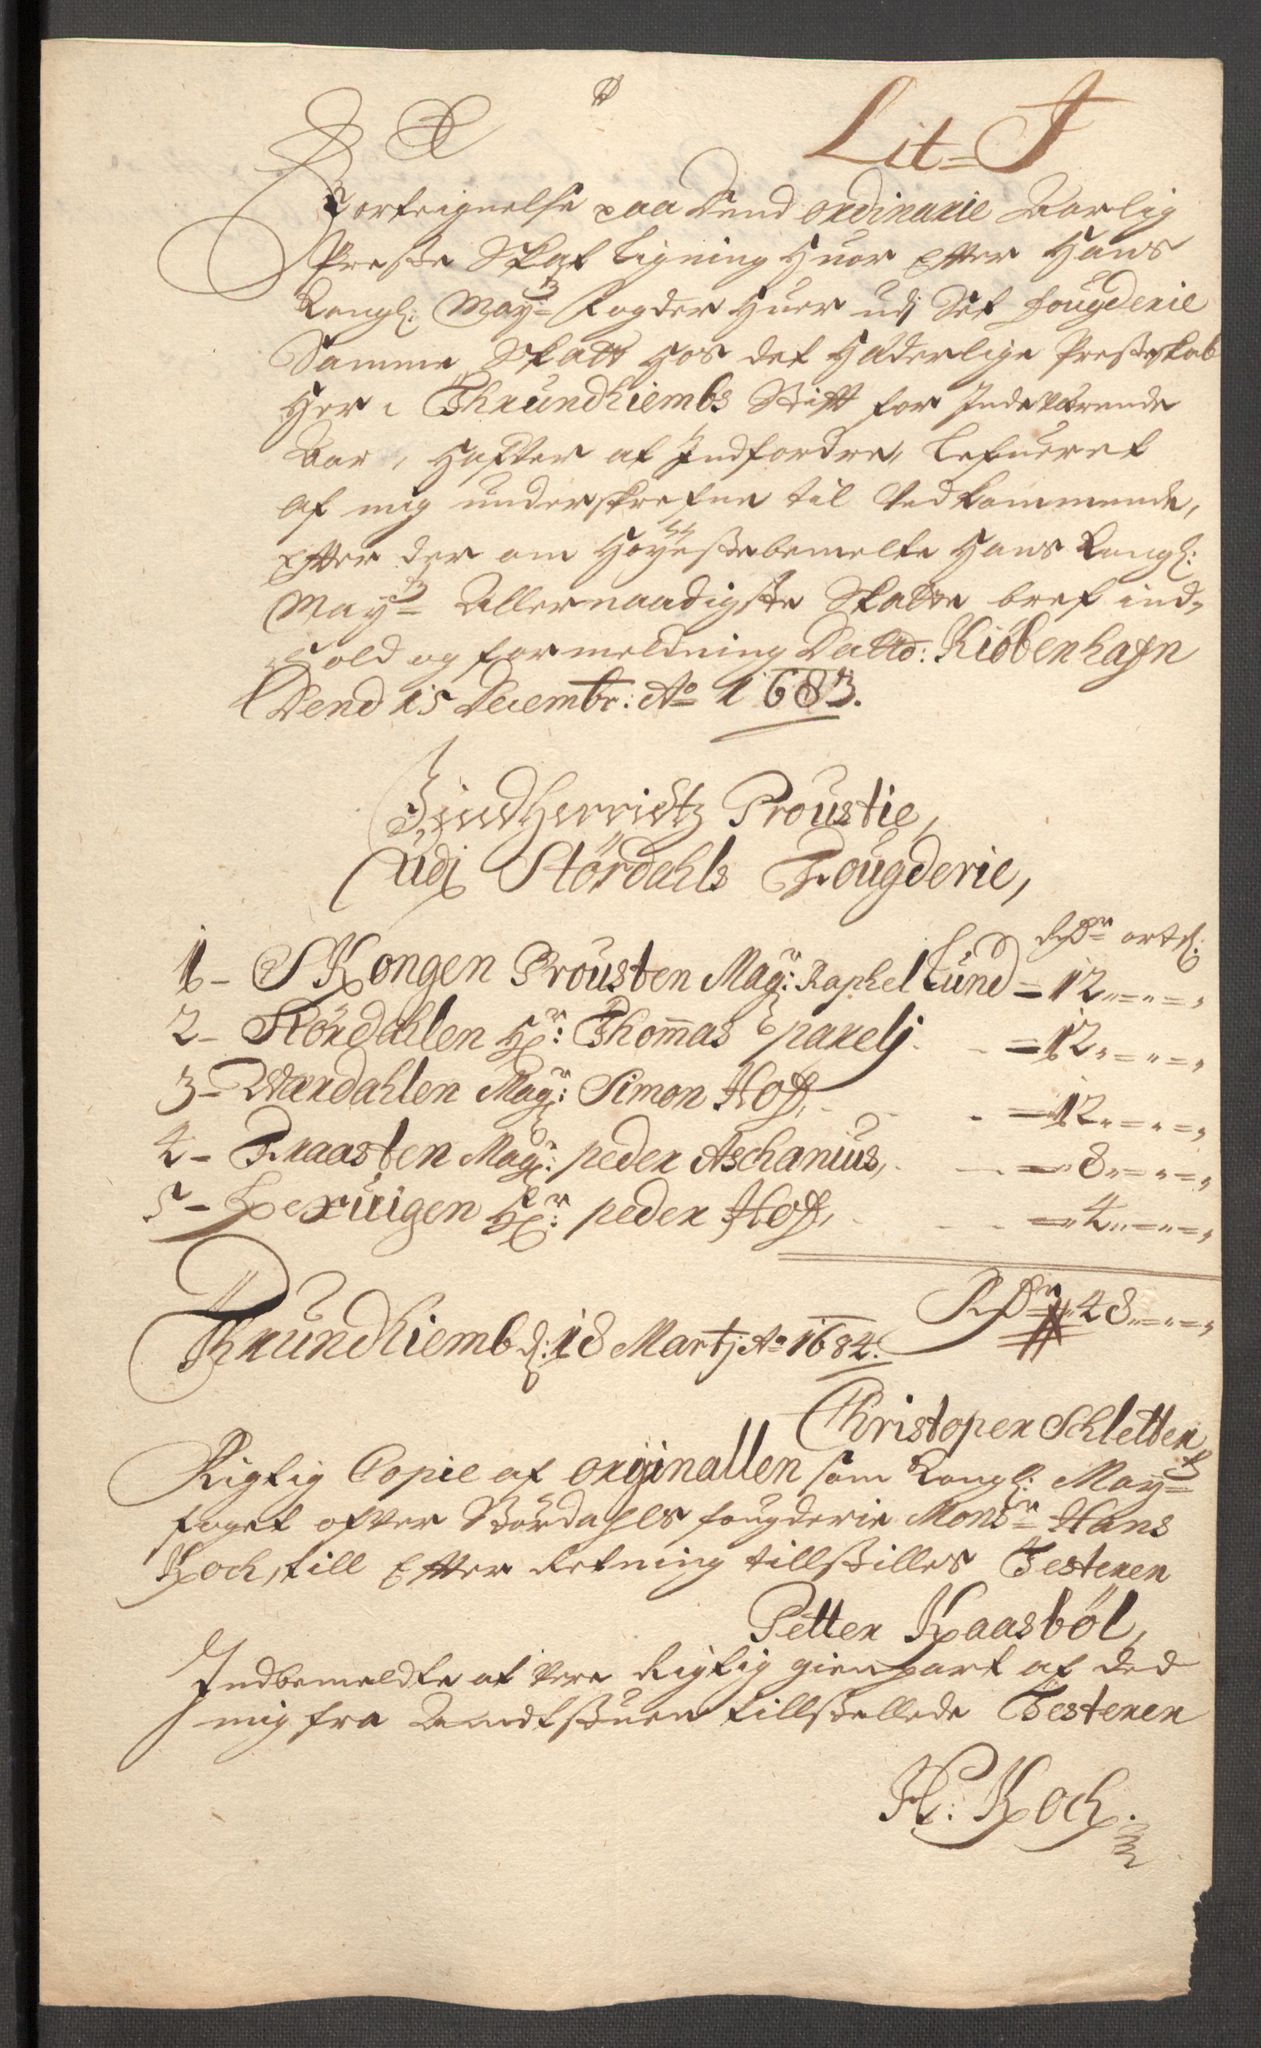 Lit= J
Forteignelse paa dend ordinarie Aarlig
Preste Skat ligning Huor efter Hans
Kongl: May: Fogder Huer udj Sit fougderie
Samme Skatt Hos det Häderlige Presteskab
Her i Thrundhiembs Stift for Indeværende
Aar, Hafver at Indfordre, lefueret
af mig underskrefne til Vedkommende,
efter der om Høyestbemelte Hans Kongl:
May: Allernaadigste Skatte bref ind,
hold og formeldning Datto: Kiöbenhafn
Dend 15 Decembr: Ao 1683.
IndHerridtz Proustie,
Udj Stördahls Fougderie,
Rdr ort ß:
1- Skongen Prousten Magr: Raphel Lund = 12 - -
2- Stördahlen Hr: Thomas parelj - = 12 - -
3- Værdahlen Magr: Simon Hof, - - = 12 - -
4- Fraasten Magr: peder Aschanius, - = 8 - -
5- Lexuigen Hr: peder Hof, - - = 4 - -
Rdr 48 - -
Thrundhiemb d: 18 Martj Ao 1684.
Christoper Schletter
Rigtig Copie af orginallen som Kongl: May:
foget ofver Stördahls fougderie Monsr Hans
Koch, till Efter Retning tillstilles Testerer
Petter Kaasböl,
Indbemeldte at vere Rigtig gienpart af ded
mig fra Landtstuen tillstellede Testerer
H: Koch.